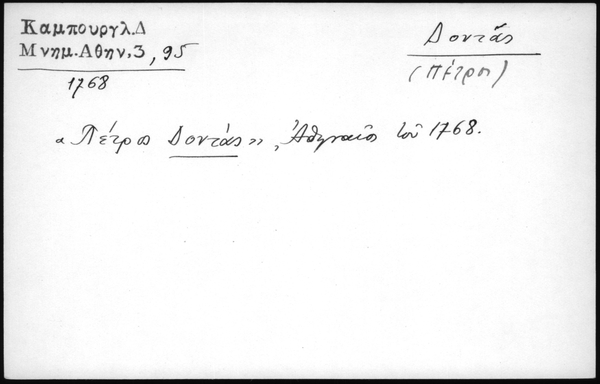 Καμπουργλ.Δ
Μνημ.Αθην.3, 95
1768
Δοντᾶς
(Πέτρος)
« Πέτρος Δοντάς», Ἀθηναῖος τοῦ 1768.